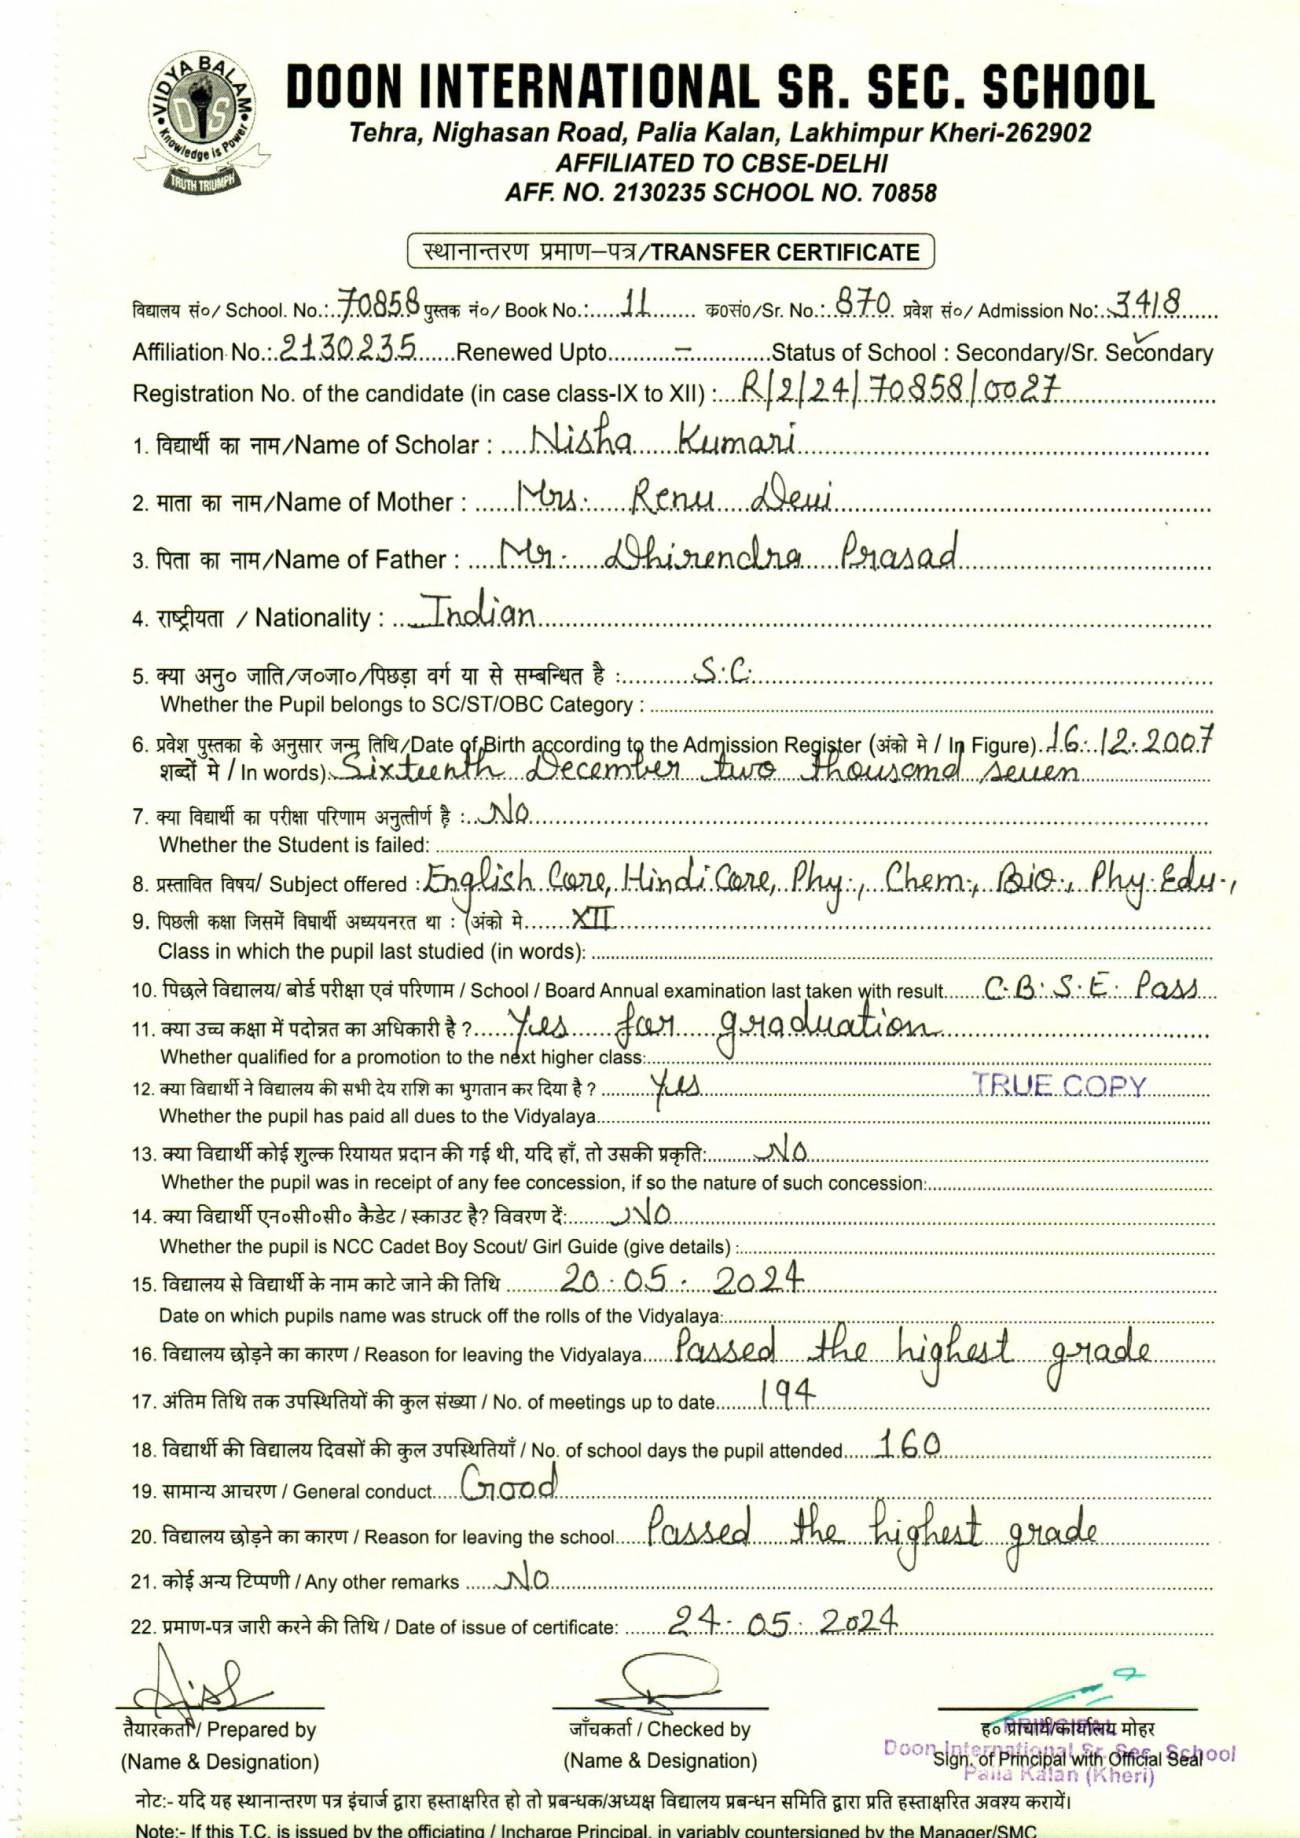 VIDYA BALAM
DIS
Knowledge is Power
TRUTH TRIUMPH
DOON INTERNATIONAL SR. SEC. SCHOOL
Tehra, Nighasan Road, Palia Kalan, Lakhimpur Kheri-262902
AFFILIATED TO CBSE-DELHI
AFF. NO. 2130235 SCHOOL NO. 70858
स्थानान्तरण प्रमाण–पत्र/TRANSFER CERTIFICATE
विद्यालय सं०/ School. No.: 70858 पुस्तक नं०/ Book No.: 11 क०सं०/Sr. No.: 870 प्रवेश सं०/ Admission No: 3418
Affiliation No.: 2130235 Renewed Upto – Status of School : Secondary/Sr. Secondary
Registration No. of the candidate (in case class-IX to XII) : R/2/24/70858/0027
1. विद्यार्थी का नाम/Name of Scholar : Nisha Kumari
2. माता का नाम/Name of Mother : Mrs. Renu Devi
3. पिता का नाम/Name of Father : Mr. Dhirendra Prasad
4. राष्ट्रीयता / Nationality : Indian
5. क्या अनु० जाति/ज०जा०/पिछड़ा वर्ग या से सम्बन्धित है : S.C.
Whether the Pupil belongs to SC/ST/OBC Category :
6. प्रवेश पुस्तका के अनुसार जन्म तिथि/Date of Birth according to the Admission Register (अंको मे / In Figure) 16.12.2007
शब्दों मे / In words) Sixteenth December two thousand seven
7. क्या विद्यार्थी का परीक्षा परिणाम अनुत्तीर्ण है : No
Whether the Student is failed:
8. प्रस्तावित विषय/ Subject offered : English Core, Hindi Core, Phy., Chem., Bio., Phy. Edu.,
9. पिछली कक्षा जिसमें विघार्थी अध्ययनरत था : (अंको मे XII
Class in which the pupil last studied (in words):
10. पिछले विद्यालय/ बोर्ड परीक्षा एवं परिणाम / School / Board Annual examination last taken with result C.B.S.E. Pass
11. क्या उच्च कक्षा में पदोन्नत का अधिकारी है ? Yes for graduation
Whether qualified for a promotion to the next higher class:
12. क्या विद्यार्थी ने विद्यालय की सभी देय राशि का भुगतान कर दिया है ? Yes TRUE COPY
Whether the pupil has paid all dues to the Vidyalaya
13. क्या विद्यार्थी कोई शुल्क रियायत प्रदान की गई थी, यदि हाँ, तो उसकी प्रकृति: No
Whether the pupil was in receipt of any fee concession, if so the nature of such concession:
14. क्या विद्यार्थी एन०सी०सी० कैडेट / स्काउट है? विवरण दें: No
Whether the pupil is NCC Cadet Boy Scout/ Girl Guide (give details) :
15. विद्यालय से विद्यार्थी के नाम काटे जाने की तिथि 20.05.2024
Date on which pupils name was struck off the rolls of the Vidyalaya:
16. विद्यालय छोड़ने का कारण / Reason for leaving the Vidyalaya Passed the highest grade
17. अंतिम तिथि तक उपस्थितियों की कुल संख्या / No. of meetings up to date 194
18. विद्यार्थी की विद्यालय दिवसों की कुल उपस्थितियाँ / No. of school days the pupil attended 160
19. सामान्य आचरण / General conduct Good
20. विद्यालय छोड़ने का कारण / Reason for leaving the school Passed the highest grade
21. कोई अन्य टिप्पणी / Any other remarks No
22. प्रमाण-पत्र जारी करने की तिथि / Date of issue of certificate: 24.05.2024
तैयारकर्ता / Prepared by
(Name & Designation)
जाँचकर्ता / Checked by
(Name & Designation)
ह० प्राचार्य/कार्यालय मोहर
Sign. of Principal with Official Seal
PRINCIPAL
Doon International Sr. Sec. School
Palia Kalan (Kheri)
नोट:- यदि यह स्थानान्तरण पत्र इंचार्ज द्वारा हस्ताक्षरित हो तो प्रबन्धक/अध्यक्ष विद्यालय प्रबन्धन समिति द्वारा प्रति हस्ताक्षरित अवश्य करायें।
Note:- If this T.C. is issued by the officiating / Incharge Principal, in variably countersigned by the Manager/SMC